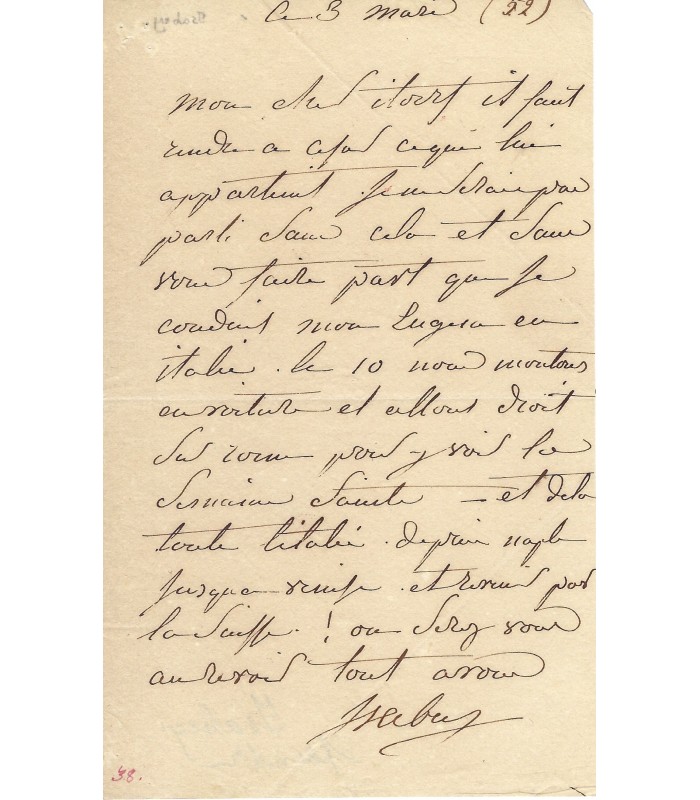 Isabey
ce 3 mars (52)
mon cher itors il faut
rendre a cesar ce qui lui
appartient. Je ne serai pas
parti sans cela et sans
vous faire part que je
conduis mon Eugene en
italie. le 10 nous montons
en voiture et allons droit
sur rome pour y voir la
semaine sainte — et dela
toute l'italie. depuis naple
jusque venise. et revenir par
la suisse. ! ou serez vous
au revoir tout a vous
Isabey
38.